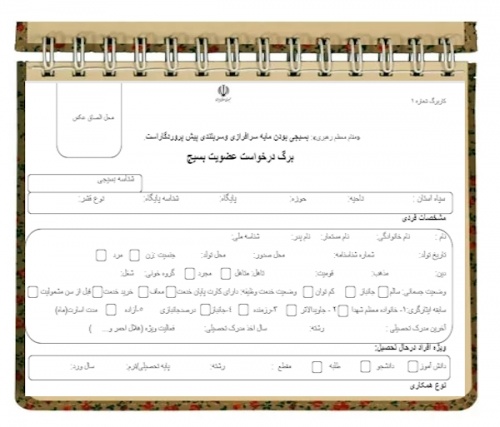 کاربرگ شماره ۱
محل الصاق عکس
«مقام معظم رهبری»: بسیجی بودن مایه سرافرازی وسربلندی پیش پروردگاراست.
برگ درخواست عضویت بسیج
شناسه بسیجی
سپاه استان : ناحیه: حوزه: پایگاه: شناسه پایگاه: نوع قشر:
مشخصات فردی
نام : نام خانوادگی: نام مستعار: نام پدر: شناسه ملی:
تاریخ تولد: شماره شناسنامه: محل صدور: محل تولد: جنسیت :زن مرد
دین: مذهب: قومیت: تاهل :متاهل مجرد گروه خونی: شغل:
وضعیت جسمانی :سالم جانباز کم توان وضعیت خدمت وظیفه: دارای کارت پایان خدمت معاف خرید خدمت قبل از سن مشمولیت
سابقه ایثارگری :۱- خانواده معظم شهدا ۲- جاویدالاثر ۳-رزمنده ۴-جانباز درصدجانبازی ۵-آزاده مدت اسارت(ماه)
آخرین مدرک تحصیلی : رشته: سال اخذ مدرک تحصیلی : فعالیت ویژه (هلال احمر و... )
ویژه افراد درحال تحصیل:
دانش آموز دانشجو طلبه مقطع : رشته: پایه تحصیلی/ترم: سال ورود:
نوع همکاری